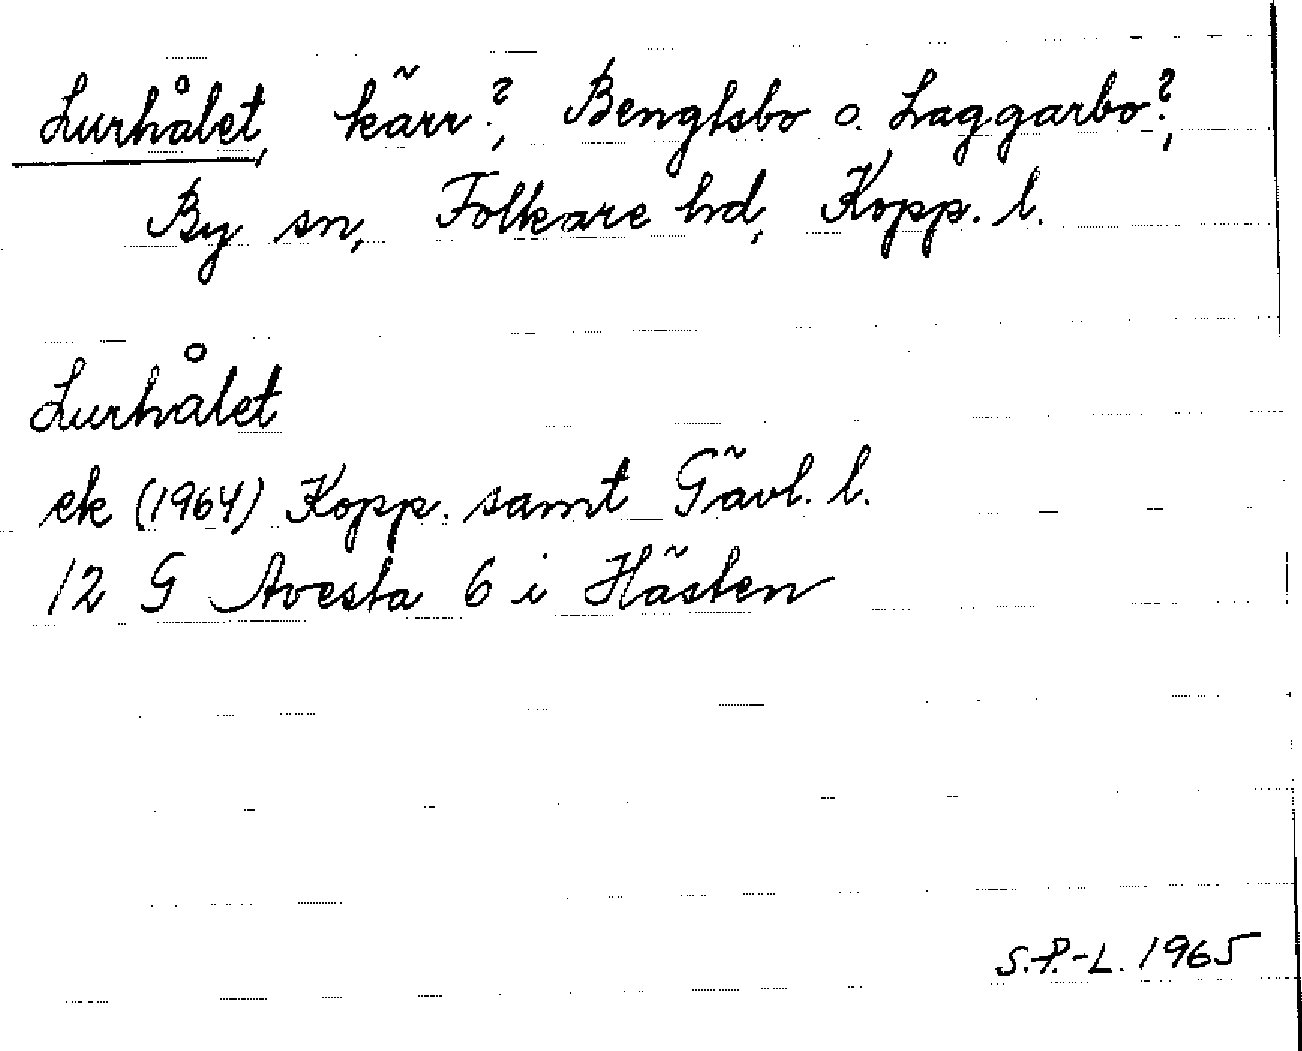 Lurhålet, kärr?, Bengtsbo o. Laggarbo?,
By sn, Folkare hd, Kopp. l.
Lurhålet
ek (1964) Kopp. samt Gävl. l.
12 G Avesta 6 i Hästen
S.P.-L. 1965